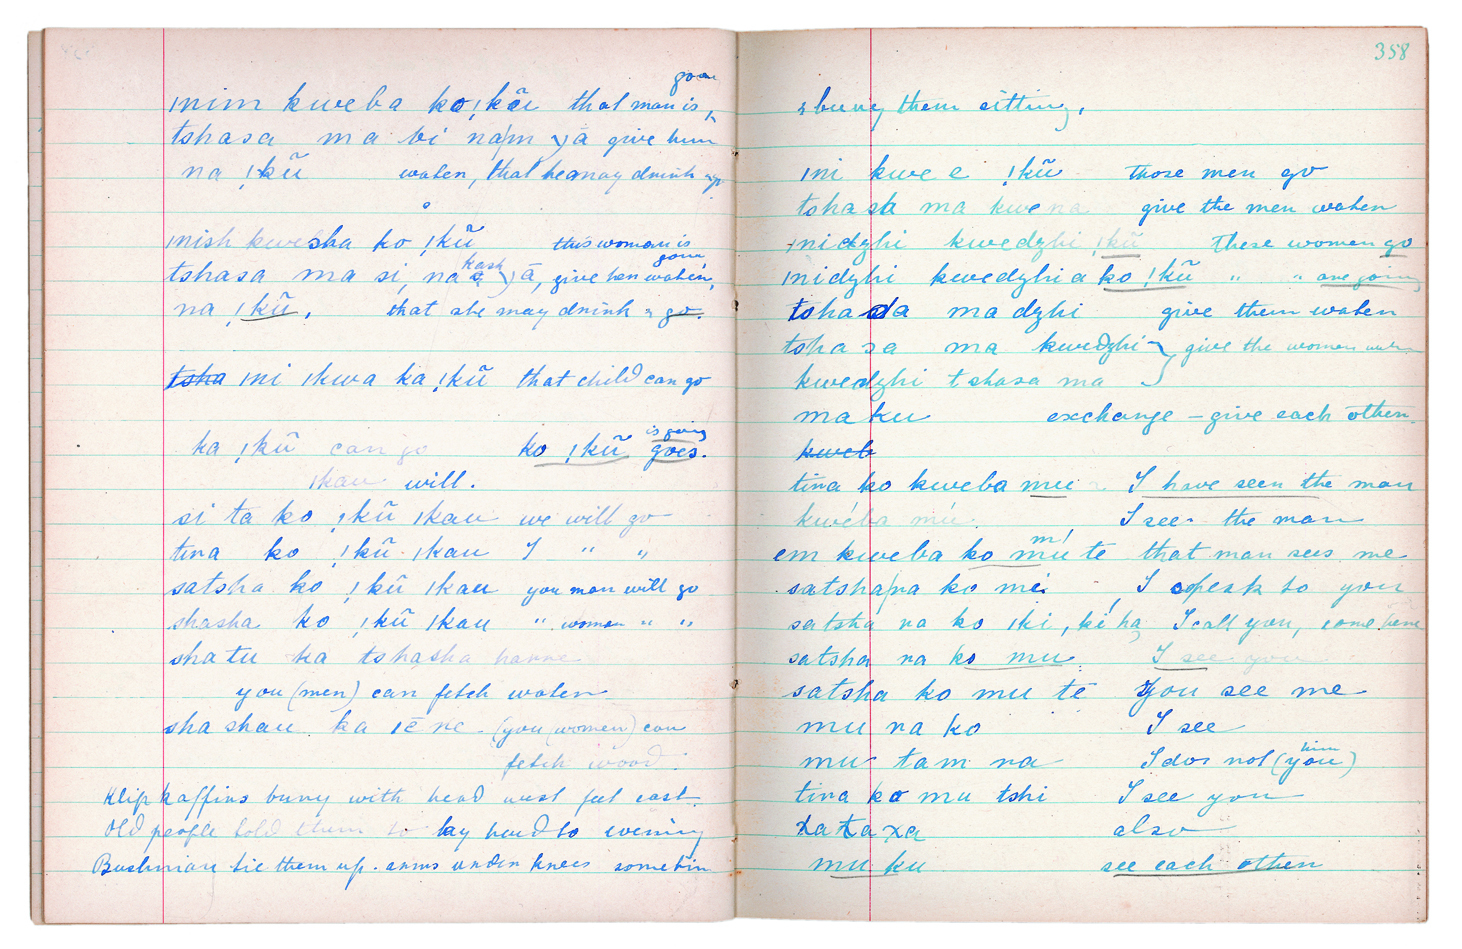 ǀnim kweba ko ǃkũ that man is gone
tshasa ma bi nam ā give him
na ǃkũ water, that he may drink & go
ǀnish kwesha ko ǃkũ this woman is gone
tshasa ma si, na kash ā, give her water,
na ǃkũ, that she may drink & go.
tsha ǀni ǀkwa ka ǃkũ that child can go
ka ǃkũ can go ko ǃkũ is going goes.
ǀkau will.
si ta ko ǃkũ ǀkau we will go
tira ko ǃkũ ǀkau I " "
satsha ko ǃkũ ǀkau you man will go
shasha ko ǃkũ ǀkau " woman " "
sha tu ka tshasha hanne
you (men) can fetch water
sha shau ka ǀē ne (you (women) can
fetch wood.
Klip kaffirs bury with head west feet east.
Old people told them to lay head to evening
Bushmen tie them up. arms under knees
358
& bury them sitting.
ǀni kwe e ǃkũ those men go
tshasa ma kwe na give the men water
ǀnidzhi kwedzhi ǃkũ These women go
ǀnidzhi kwedzhi a ko ǃkũ " " are going
tsha da ma dzhi give them water
tsha sa ma kwedzhi give the women water
kwedzhi tshasa ma
ma ku exchange – give each other.
kweb
tira ko kweba mu I have seen the man
kwéba mú I see the man
em kweba ko mú m! te that man sees me
satsha ra ko mei I speak to you
satsha ra ko ǀki, ki ha I call you, come here
satsha ra ko mu I see you
satsha ko mu te You see me
mu ra ko I see
mu tam ra I do not (you) him
tira ko mu tshi I see you
xa xa xa also
mu ku see each other